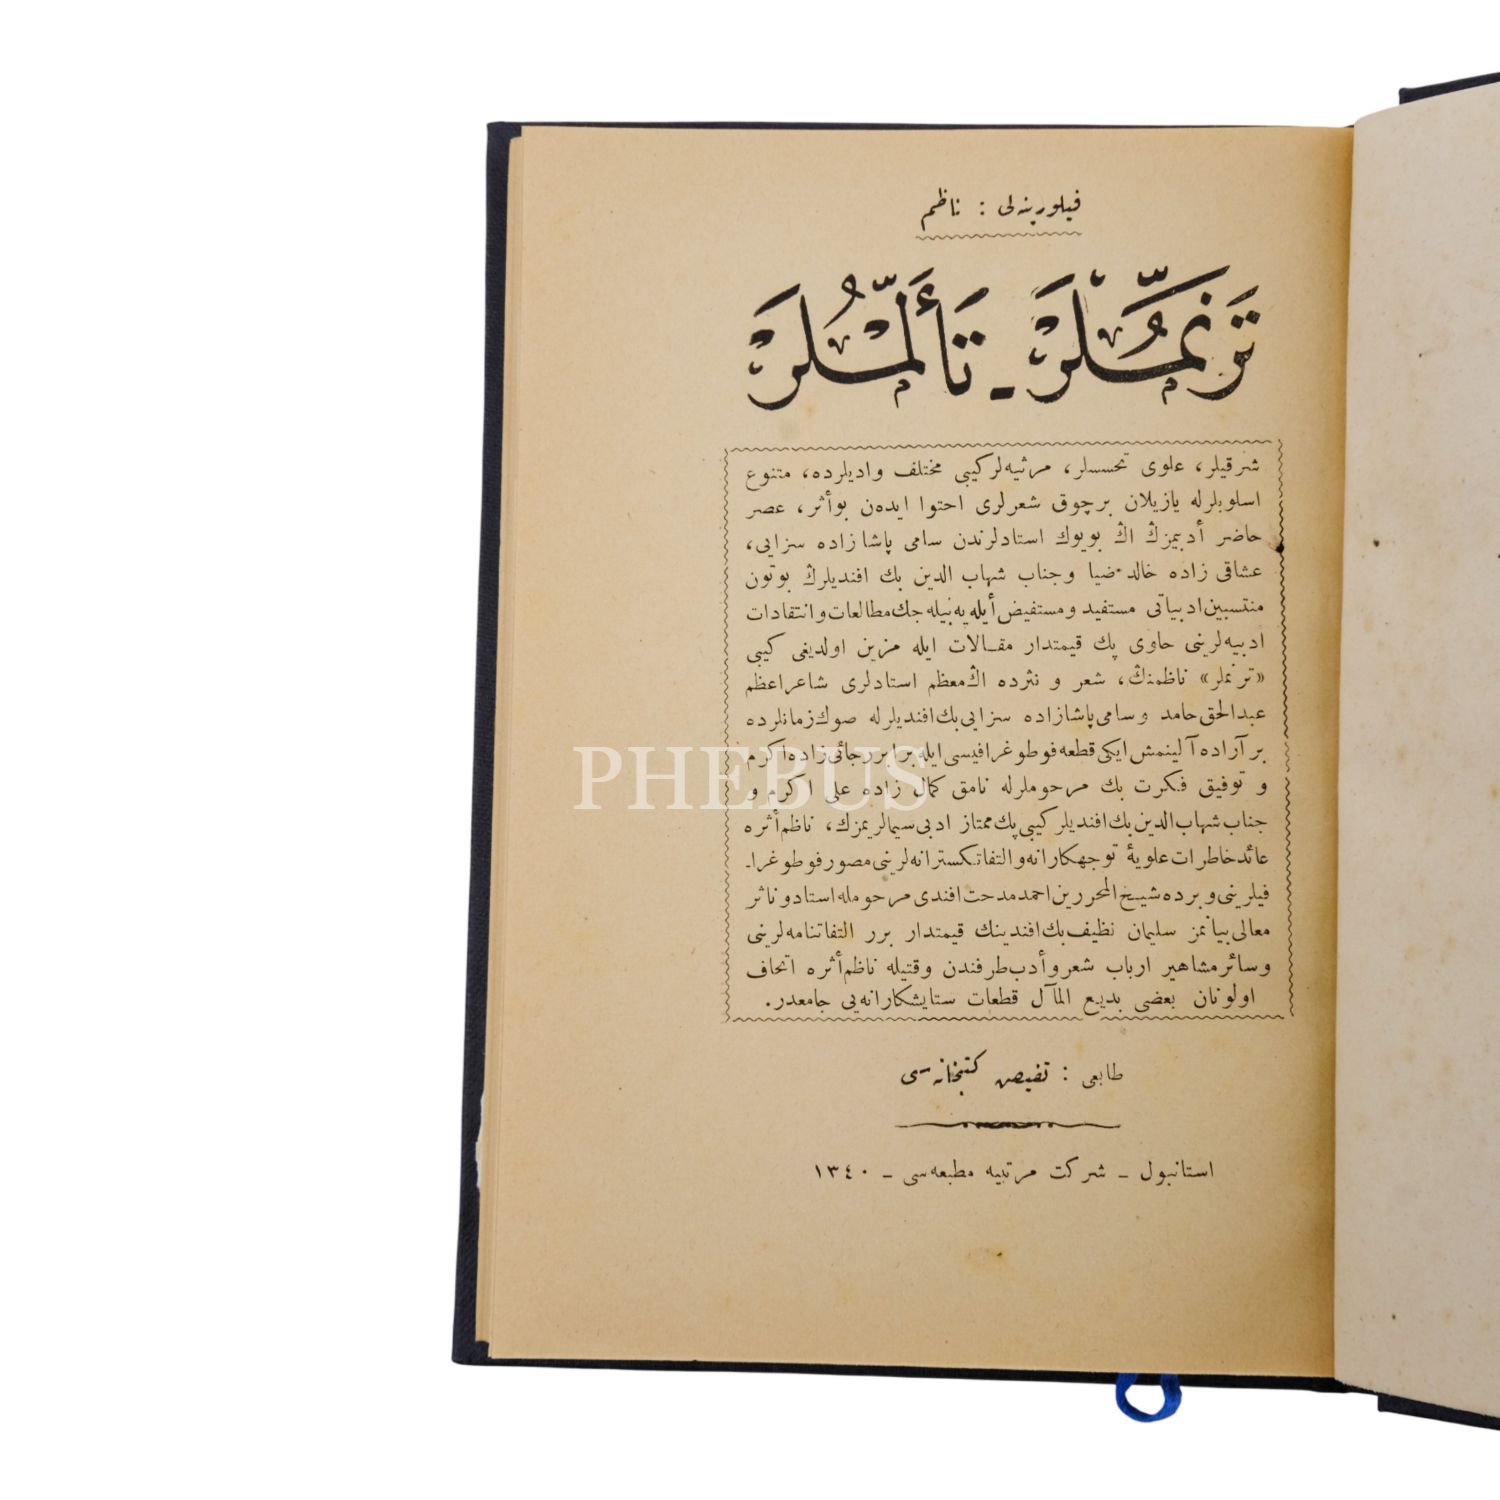 فیلورینه‌لی : ناظم
تَرَنُّملَر ـ تَأَلُّملَر
شرقیلر، علوی تحسسلر، مرثیه‌لر کیبی مختلف وادیلرده، متنوع
اسلوبلرله یازیلان برچوق شعرلری احتوا ایدەن بوأثر، عصر
حاضر أدبیمزڭ اڭ بویوك استادلرندن سامی پاشا زاده سزایی،
عشاقی زاده خالد ضیا وجناب شهاب الدین بك افندیلرڭ بوتون
منتسبین ادبیاتی مستفید ومستفیض أیله‌یه‌بیله‌جك مطالعات وانتقادات
ادبیه‌لرینی حاوی پك قیمتدار مقـالات ایله مزین اولدیغی کیبی
«ترنملر» ناظمنڭ، شعر و نثرده اڭ معظم استادلری شاعراعظم
عبدالحق حامد وسامی پاشازاده سزایی بك افندیلرله صوك زمانلرده
بر آراده آلینمش ایکی قطعه فوطوغرافیسی ایله برابر رجائی زاده اکرم
و توفیق فکرت بك مرحوملرله نامق کمال زاده علی اکرم و
جناب شهاب الدین بك افندیلر کیبی پك ممتاز ادبی سیمالریمزك، ناظم أثره
عائد خاطرات علویهٔ توجهکارانه والتفاتکسترانه‌لرینی مصور فوطوغراـ
فیلرینی و برده شیخ المحررین احمد مدحت افندی مرحومله استاد وناثر
معالی بیانمز سلیمان نظیف بك افندینك قیمتدار برر التفاتنامه‌لرینی
وسائر مشاهیر ارباب شعر و أدب طرفندن وقتیله ناظم أثره اتحاف
اولونان بعضی بدیع المآل قطعات ستایشکارانه‌یی جامعدر.
طابعی : تفیض کتبخانه‌سی
استانبول ـ شرکت مرتبیه مطبعه‌سی ـ ١٣٤٠
PHEBUS